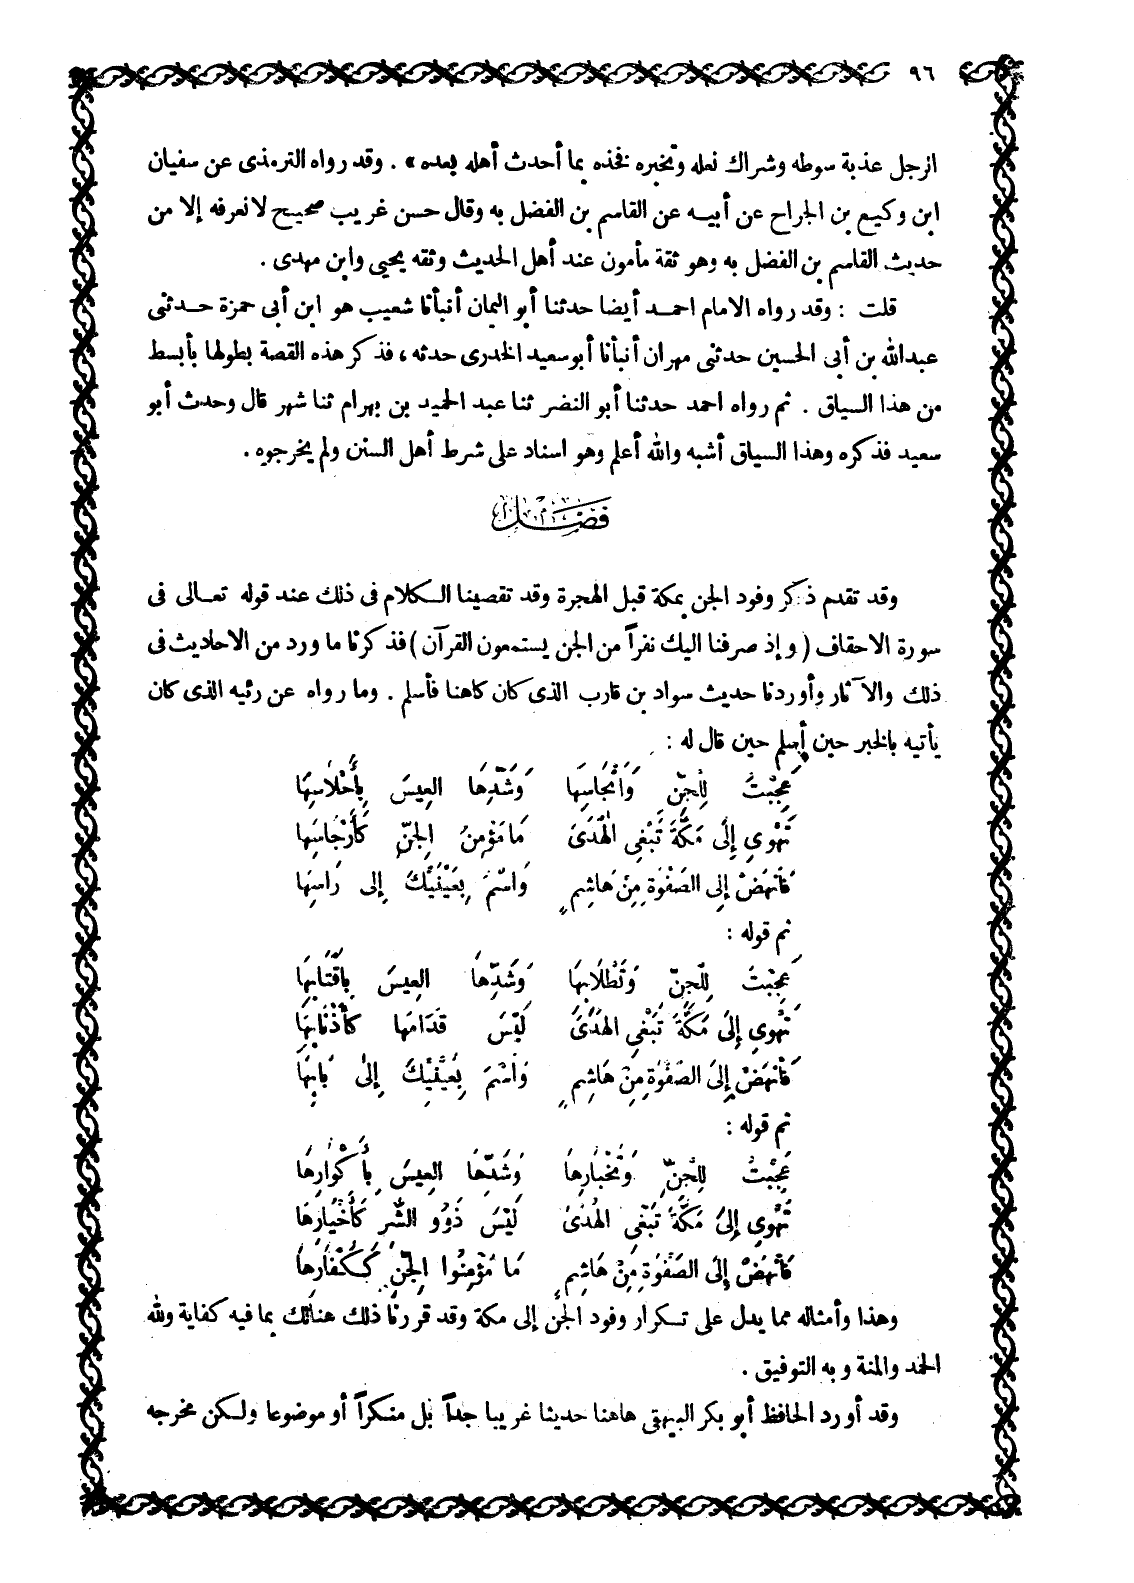 ٩٦
الرجل عذبة سوطه وشراك نعله وتخبره فخذه بما أحدث أهله بعده » . وقد رواه الترمذى عن سفيان
ابن وكيع بن الجراح عن أبيه عن القاسم بن الفضل به وقال حسن غريب صحيح لا نعرفه إلا من
حديث القاسم بن الفضل به وهو ثقة مأمون عند أهل الحديث وثقه يحيى وابن مهدى .
قلت : وقد رواه الامام احمد أيضا حدثنا أبو اليمان أنبأنا شعيب هو ابن أبى حمزة حدثنى
عبدالله بن أبى الحسين حدثنى مهران أنبأنا أبو سعيد الخدرى حدثه ، فذكر هذه القصة بطولها بأبسط
من هذا السياق . ثم رواه احمد حدثنا أبو النضر ثنا عبد الحميد بن بهرام ثنا شهر قال وحدث أبو
سعيد فذكره وهذا السياق أشبه والله أعلم وهو اسناد على شرط أهل السنن ولم يخرجوه .
فَصْل
وقد تقدم ذكر وفود الجن بمكة قبل الهجرة وقد تقصينا الكلام فى ذلك عند قوله تعالى فى
سورة الاحقاف ( وإذ صرفنا اليك نفراً من الجن يستمعون القرآن ) فذكرنا ما ورد من الاحاديث فى
ذلك والآثار وأوردنا حديث سواد بن قارب الذى كان كاهنا فأسلم . وما رواه عن رئيه الذى كان
يأتيه بالخبر حين أسلم حين قال له :
عَجِبْتُ لِلْجِنِّ وَأَنْجَاسِهَا وَشَدِّهَا العِيسَ بِأَحْلَاسِهَا
تَهْوِي إِلَى مَكَّةَ تَبْغِى الْهُدَى مَا مُؤْمِنُ الجِنِّ كَأَرْجَاسِهَا
فَانْهَضْ إِلى الصَّفْوَةِ مِنْ هَاشِمٍ وَاسْمُ بِعَيْنَيْكَ إِلى رَاسِهَا
ثم قوله :
عَجِبْتُ لِلْجِنِّ وَتَطْلَابِهَا وَشَدِّهَا العِيسَ بِأَقْتَابِهَا
تَهْوِي إِلَى مَكَّةَ تَبْغِى الهُدَى لَيْسَ قُدَامَهَا كَأَذْنَابِهَا
فَانْهَضْ إِلَى الصَّفْوَةِ مِنْ هَاشِمٍ وَاسْمُ بِعَيْنَيْكَ إِلَى بَابِهَا
ثم قوله :
عَجِبْتُ لِلْجِنِّ وَتَخْبَارِهَا وَشَدِّهَا العِيسَ بِأَكْوَارِهَا
تَهْوِي إِلَى مَكَّةَ تَبْغِى الهُدَى لَيْسَ ذَوُو الشَّرِ كَأَخْيَارِهَا
فَانْهَضْ إِلَى الصَّفْوَةِ مِنْ هَاشِمٍ مَا مُؤْمِنُوا الجِنِّ كَكُفَّارِهَا
وهذا وأمثاله مما يدل على تكرار وفود الجن إلى مكة وقد قررنا ذلك هنالك بما فيه كفاية ولله
الحمد والمنة وبه التوفيق .
وقد أورد الحافظ أبو بكر البيهقى هاهنا حديثا غريبا جداً بل منكراً أو موضوعا ولكن مخرجه